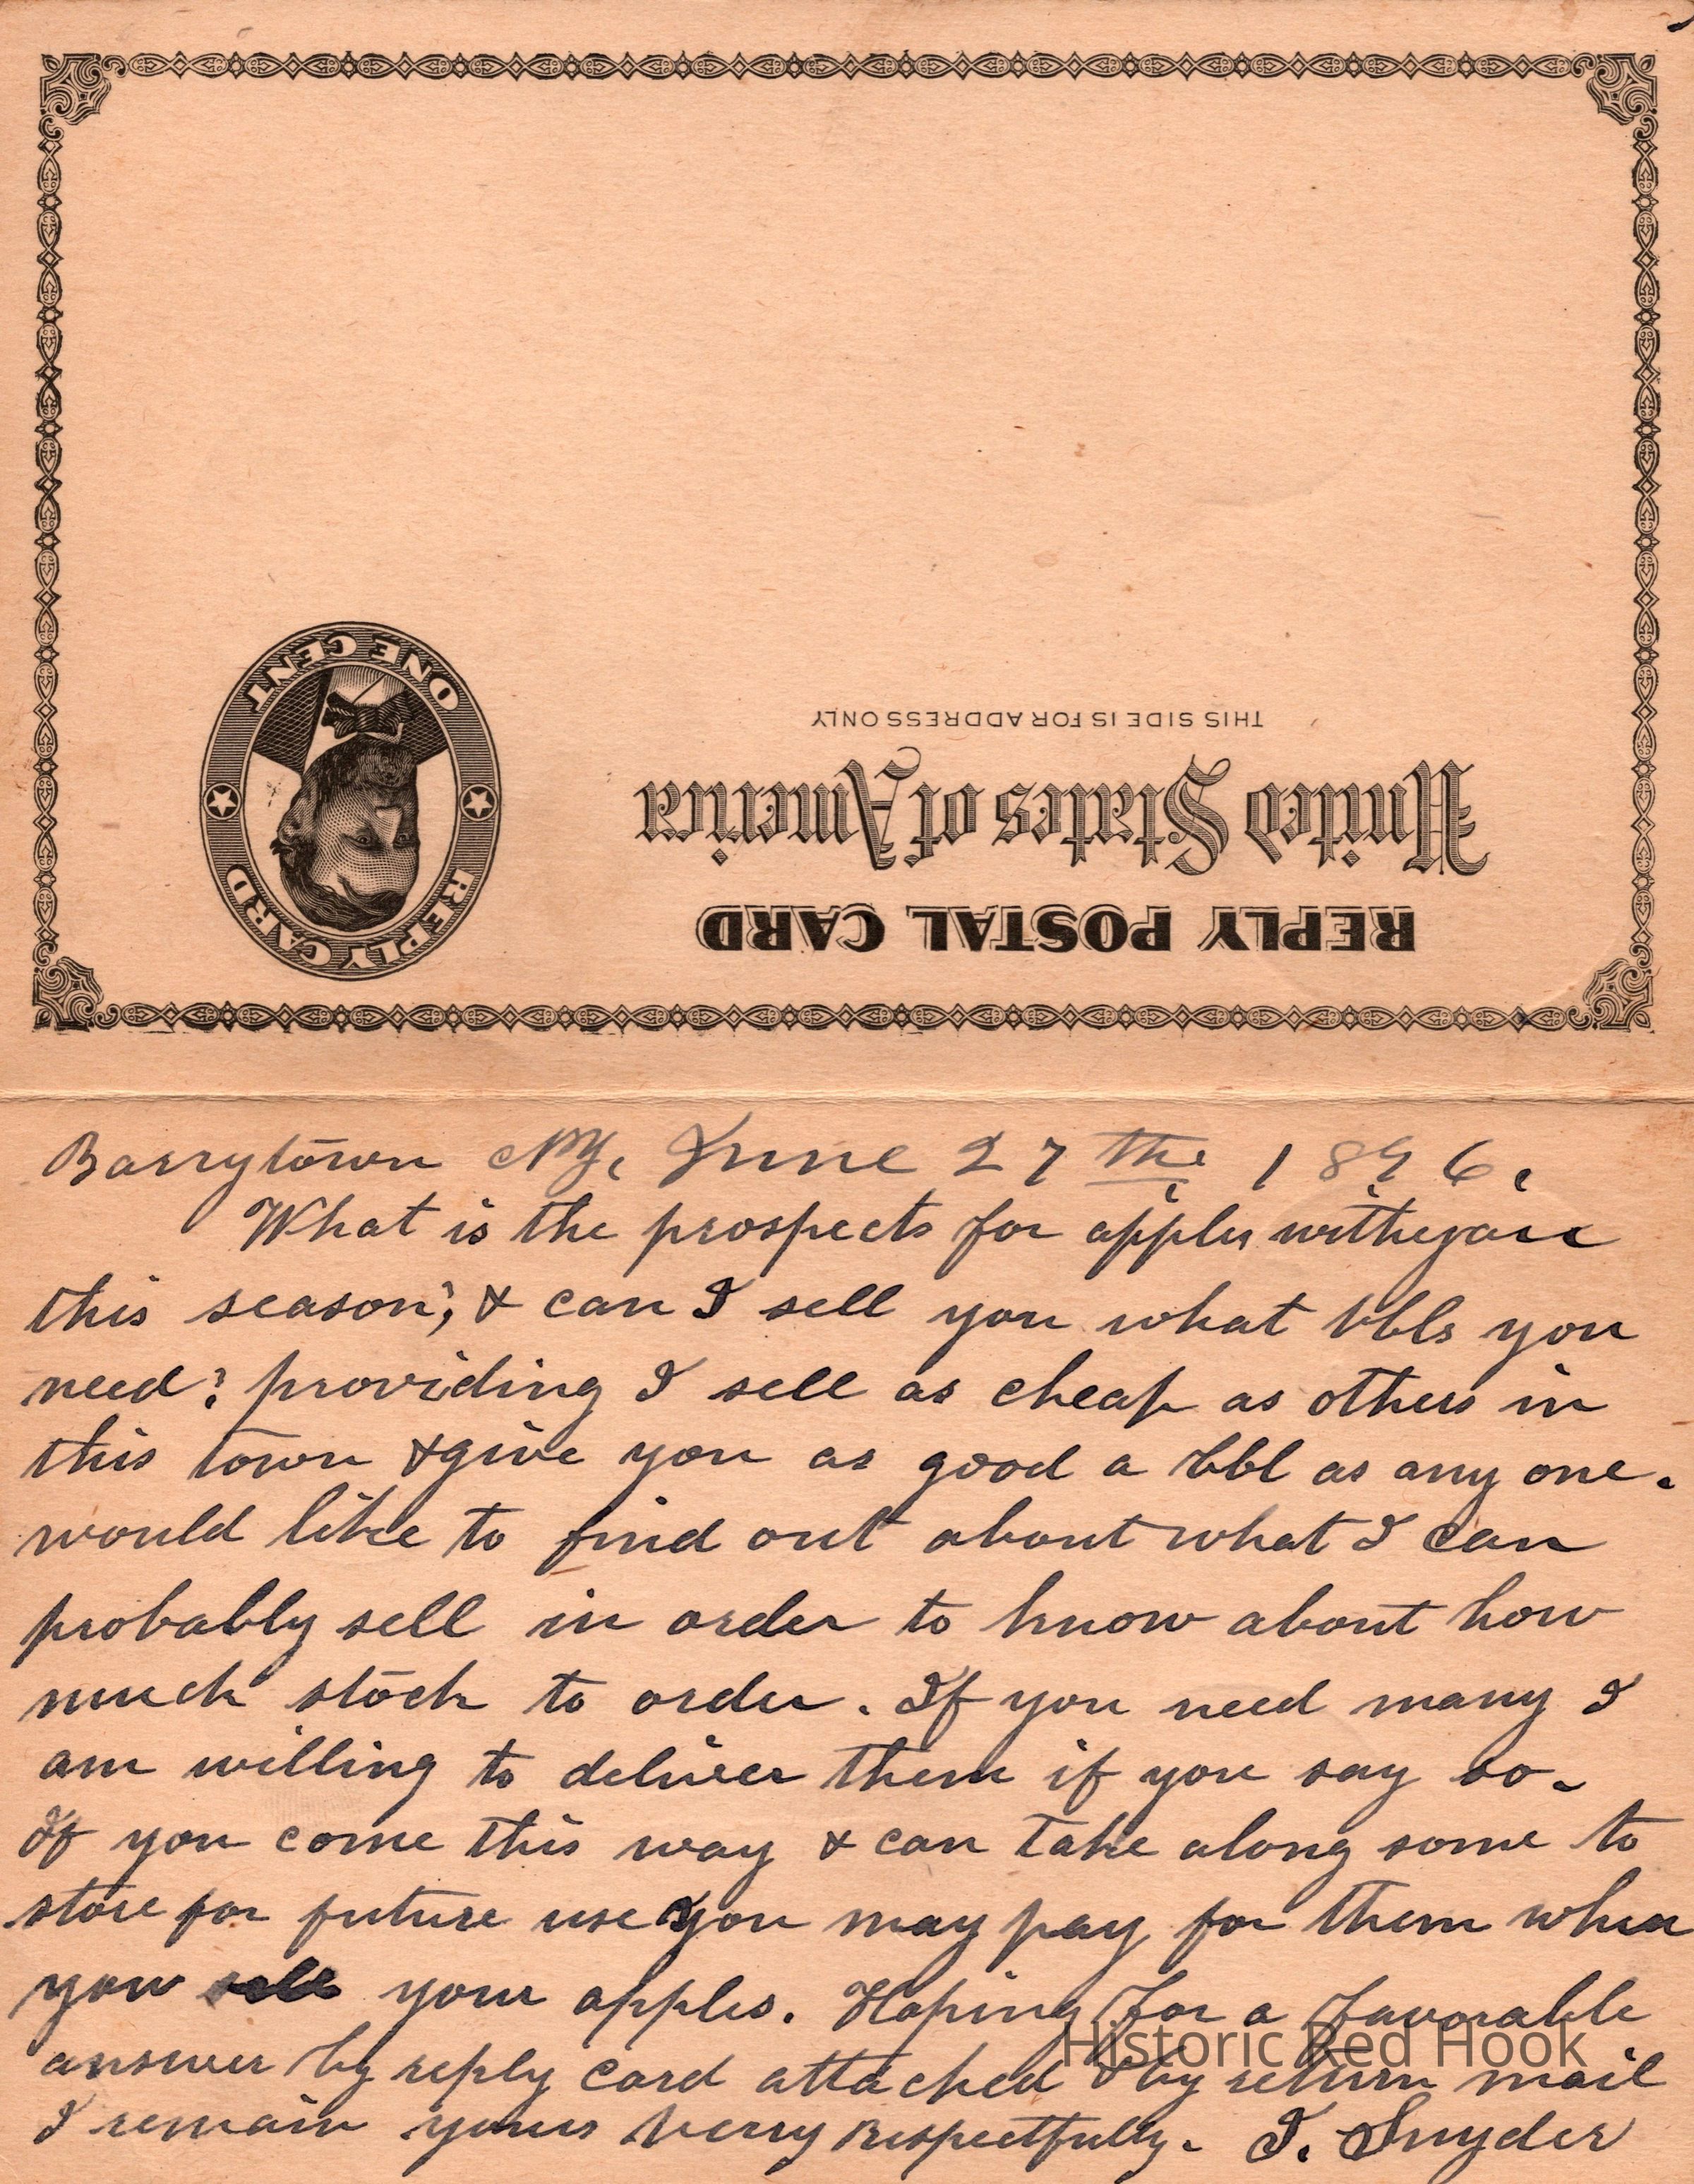 ONE CENT
REPLY CARD
THIS SIDE IS FOR ADDRESS ONLY
United States of America
REPLY POSTAL CARD
Barrytown NY, June 27th 1896.
What is the prospects for apples with you
this season; & can I sell you what bbls you
need? providing I sell as cheap as others in
this town & give you as good a bbl as any one.
would like to find out about what I can
probably sell in order to know about how
much stock to order. If you need many I
am willing to deliver them if you say so.
If you come this way & can take along some to
store for future use you may pay for them when
you sell your apples. Hoping for a favorable
answer by reply card attached & by return mail
I remain yours verry respectfully. I. Snyder
Historic Red Hook